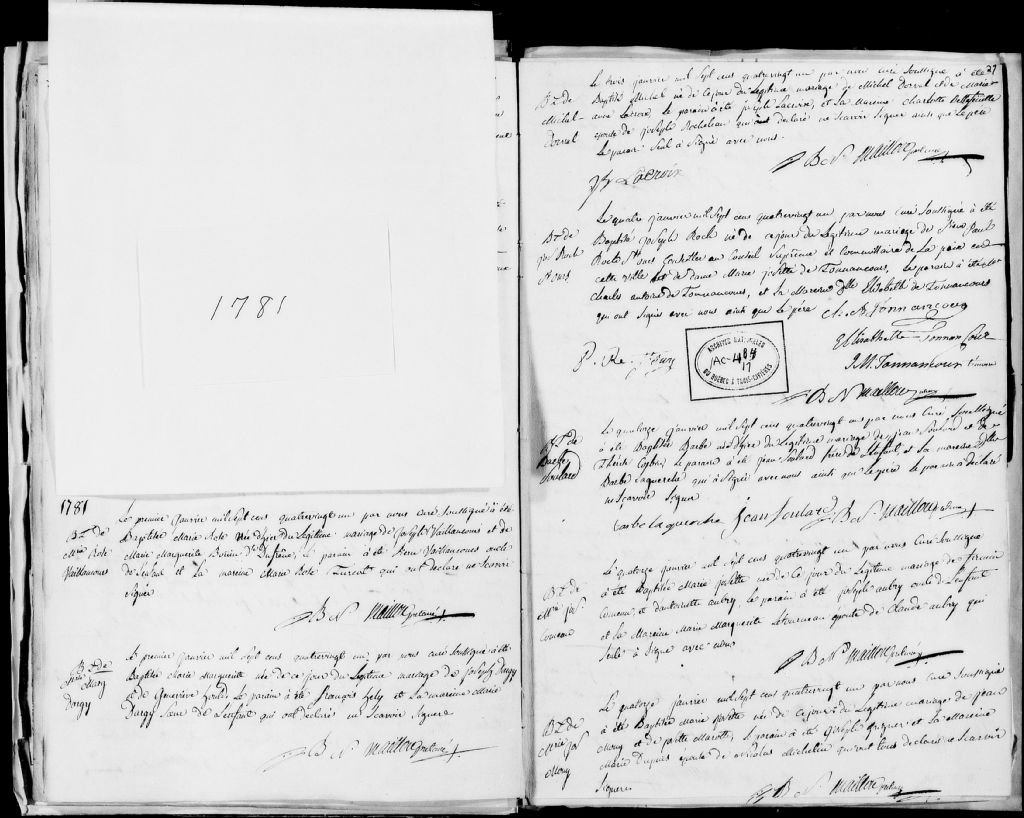 1781
1781
Le premier janvier mil sept cens quatrevingt un par nous curé soussigné à été
Bt. de
Baptisé Marie Rose née hier du légitime mariage de joseph Vaillancour et de
Mrie Rose
Marie Marguerite le parain à été Vaillancour oncle
Vaillancour
de lenfant et La mareine Marie Rose Turcot qui ont declaré ne Scavoir
signer
B N Mailloux
Le premier janvier mil sept cens quatrevingt un par nous curé soussigné à été
Bt. de
Baptisé Marie Marguerite née de ce jour du Légitime mariage de joseph Dargy
Marg
et de Genevieve Le parain à été françois hely et La mareine Marie
Dargy
Dargy Sœur de Lenfant qui ont declaré ne Scavoir Signer
B N Mailloux
27
Le trois janvier mil sept cens quatrevingt un par nous curé Soussigné à été
Bt. de
Baptisé Michel né de ce jour du Légitime mariage de Michel Dorval et de Marie
Michel
Lacroix, Le parain à été joseph Lacroix, et La Mareine Charlotte
Dorval
epouse de joseph Rocheleau qui ont declaré ne Scavoir Signer ainsi que Le pere
Le parain Seul à Signé avec nous.
B N Mailloux
Lacroix
Le quatre janvier mil sept cens quatrevingt un par nous curé Soussigné à été
Bt. de
Baptisé joseph Roch né de ce jour du Légitime mariage de Sieur Paul
jos Roch
Roch St ours Conseiller au Conseil Suprême et Commissaire de La paix en
St ours
cette ville et de Dame Marie josette de Tonnancour, Le parain à été Mr
Charles antoine de Tonnancour, et La Mareine Dlle Elizabeth de Tonnancour
qui ont Signés avec nous ainsi que Le pére
Ch. A. Tonnancour
Elisabette Tonnancour
P. Re. St Ours
J. M. Tonnancour
ARCHIVES NATIONALES
AC-484
17
DU QUÉBEC À TROIS-RIVIÈRES
B N Mailloux
Le quatorze janvier mil sept cens quatrevingt un par nous Curé Soussigné
Bt. de
à été Baptisée Barbe née hier du Légitime mariage de jean Soulard et de
Barbe
Le parain à été jean Soulard frère de Lenfant, et La mareine Dlle
Soulard
Barbe Laquerche qui à Signé avec nous ainsi que Le pere Le parain à declaré
ne Scavoir Signer
barbe laquerche jean Soulard B N Mailloux
Le quatorze janvier mil sept cens quatrevingt un par nous Curé Soussigné
Bt. de
à été Baptisée Marie josette née de ce jour du Légitime mariage de firmin
Mrie jos
Comeau et d'antoinette aubry, Le parain à été joseph aubry oncle de Lenfant
Comeau
et La Mareine Marie Marguerite Letourneau epouse de Claude aubry qui
Seule à Signé avec nous
B N Mailloux
Le quatorze janvier mil sept cens quatrevingt un par nous Curé Soussigné
Bt. de
à été Baptisée Marie josette née de ce jour du Légitime mariage de jean
Mrie jos
Mony et de josette Marotte, Le parain à été joseph et La Mareine
Mony
Marie Dupuis epouse de Nicolas Michelin qui ont tous declaré ne Scavoir
Signer
B N Mailloux